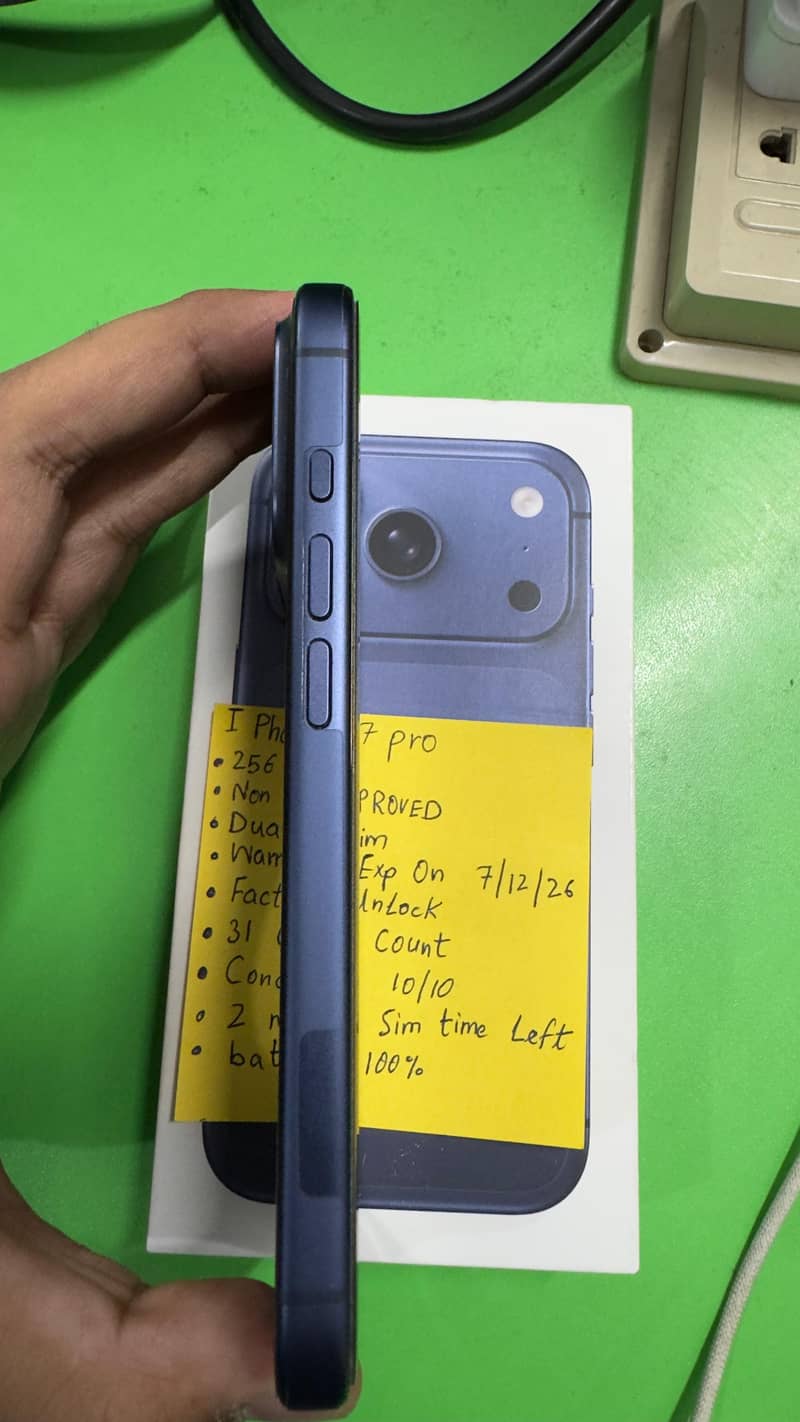 I Pho 7 pro
• 256
• Non PROVED
• Dua im
• Warr Exp On 7/12/26
• Fact UnLock
• 31 Count
• Cond 10/10
• 2 m Sim time Left
• bat 100%